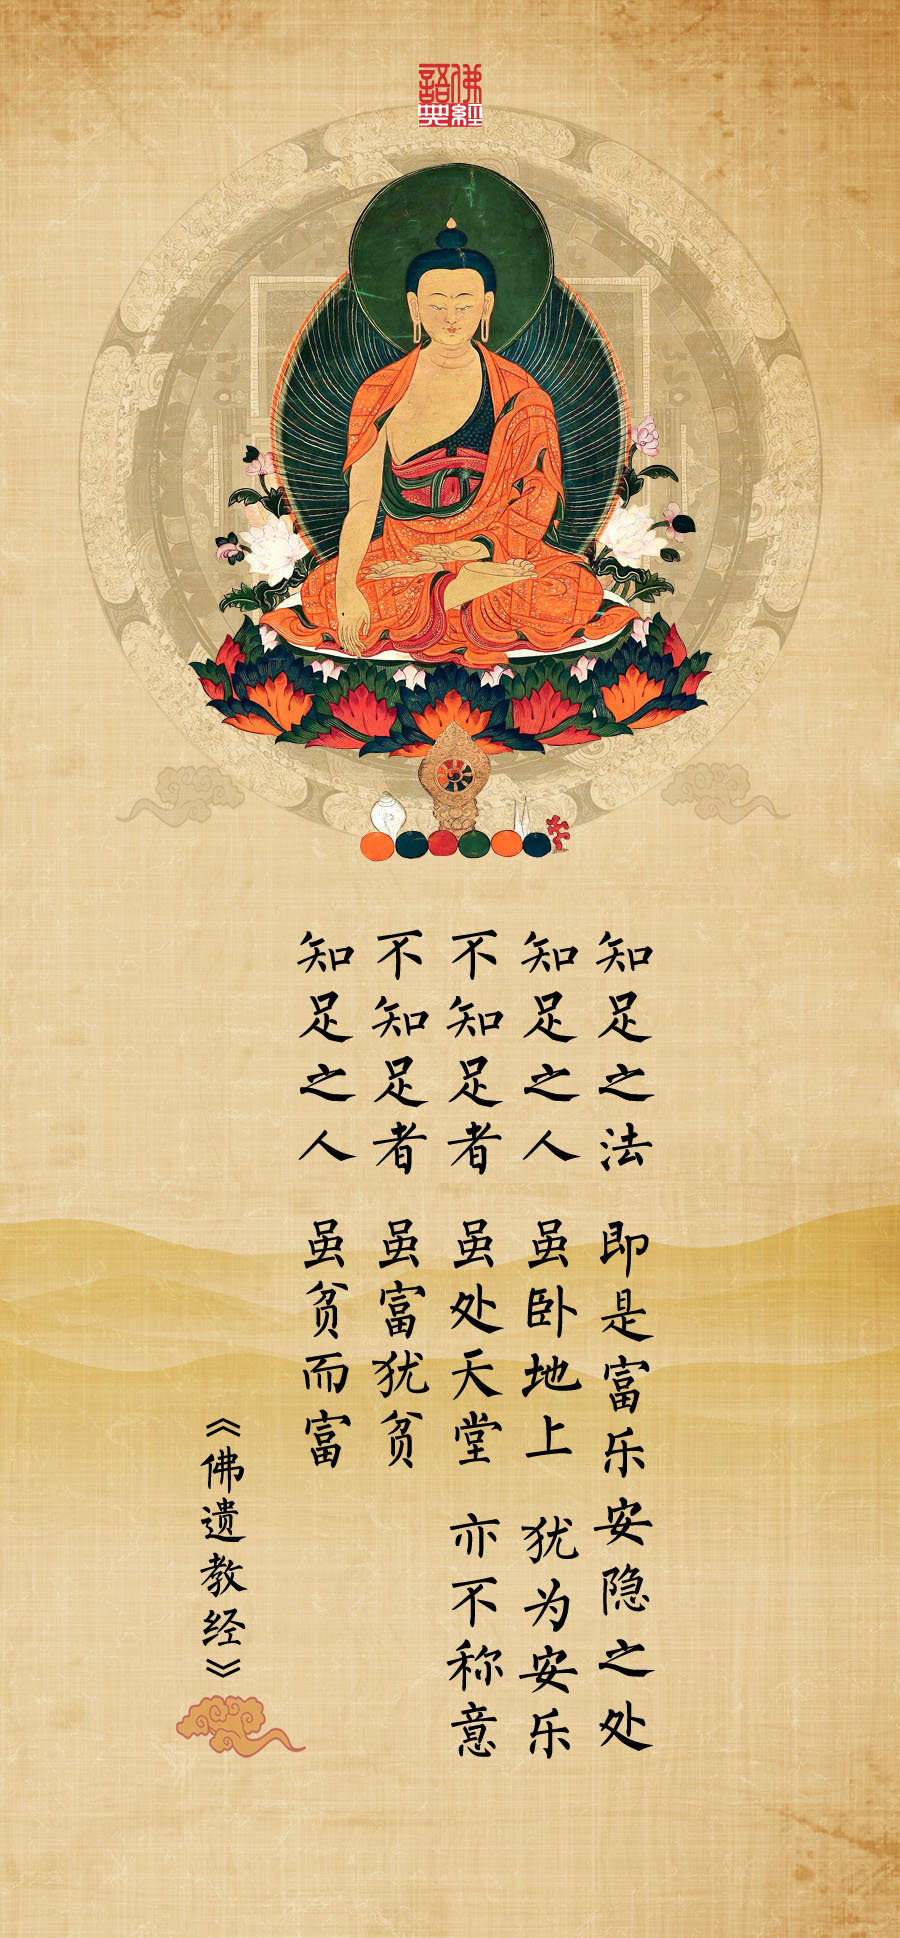 佛語
經典
知足之法 即是富乐安隐之处
知足之人 虽卧地上 犹为安乐
不知足者 虽处天堂 亦不称意
不知足者 虽富犹贫
知足之人 虽贫而富
《佛遗教经》